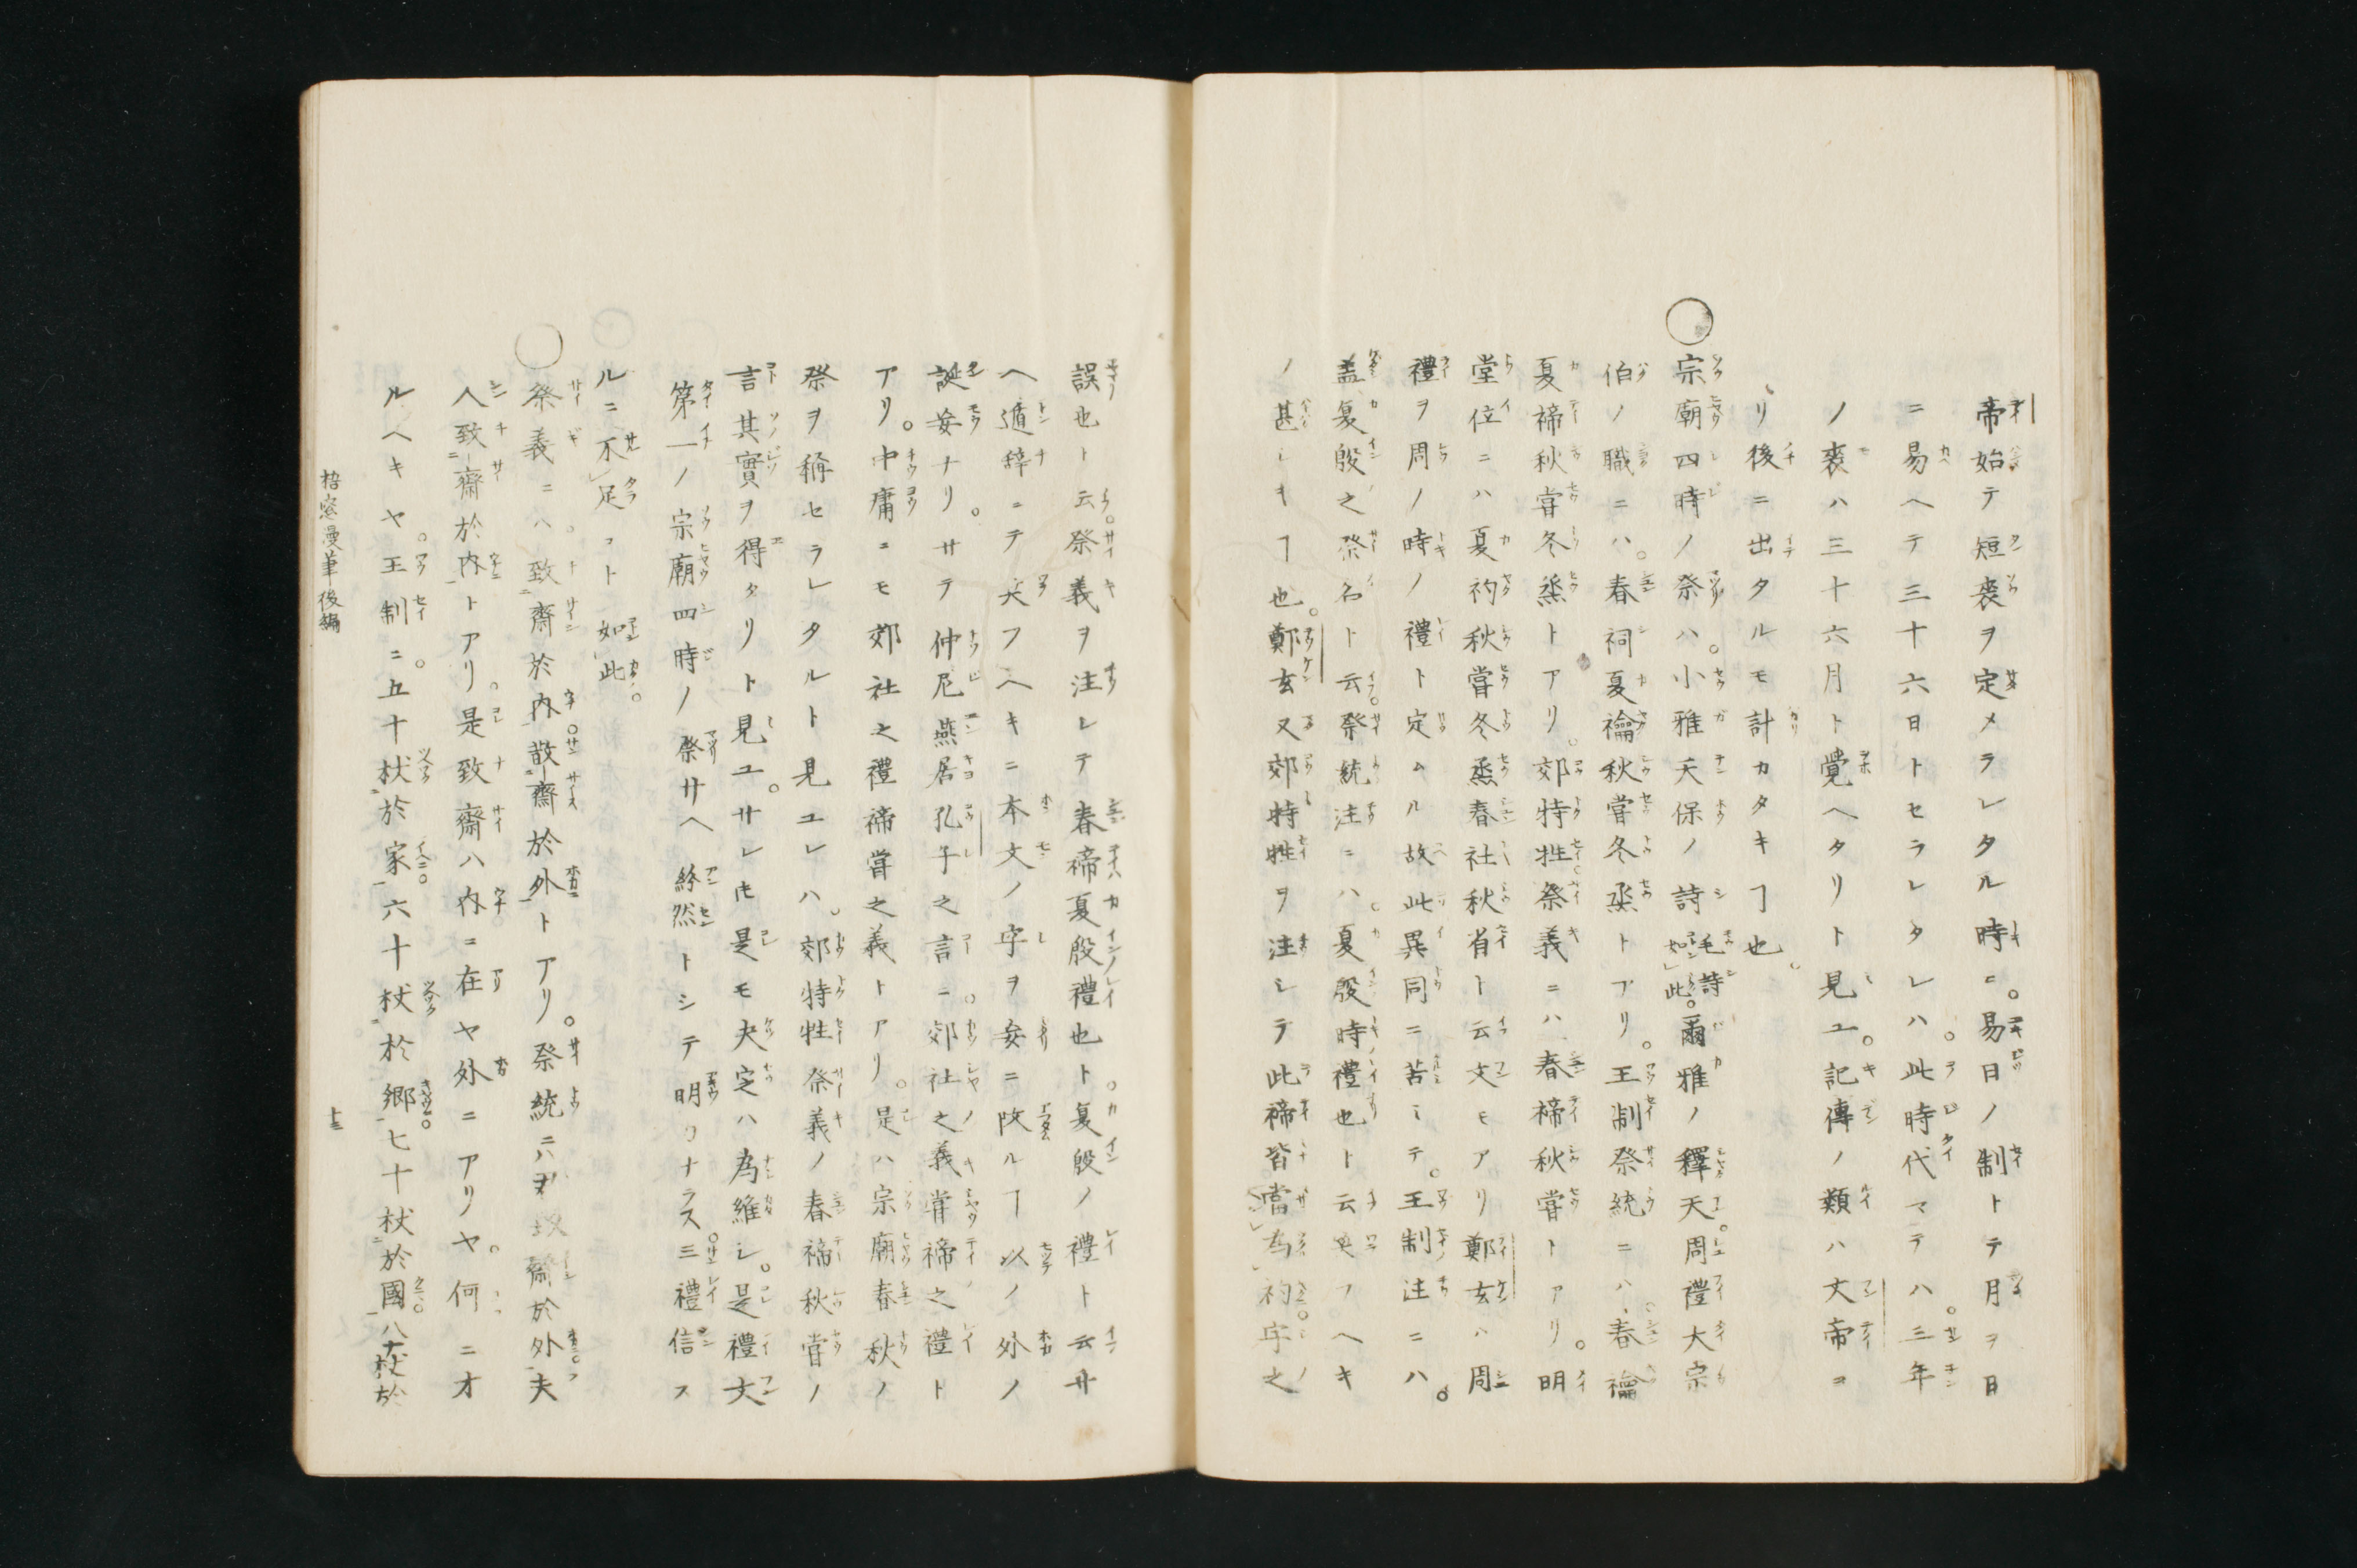 帝始テ短喪ヲ定メラレタル時ニ。易日ノ制トテ月ヲ日
ニ易ヘテ三十六日トセラレタレハ。此時代マテハ。三年
ノ喪ハ三十六月ト覺ヘタリト見ユ。記傳ノ類ハ文帝ヨ
リ後ニ出タルモ計カタキヿ也。
宗廟四時ノ祭ハ。小雅天保ノ詩毛詩如此。爾雅ノ釋天。周禮大宗
伯ノ職ニハ。春祠夏禴秋嘗冬烝トアリ。王制祭統ニハ。春禴
夏禘秋嘗冬烝トアリ。郊特牲。祭義ニハ春禘秋嘗トアリ。明
堂位ニハ夏礿秋嘗冬烝春社秋省ト云文モアリ鄭玄ハ周
禮ヲ周ノ時ノ禮ト定ムル故此異同ニ苦ミテ。王制注ニハ。
蓋夏殷之祭名ト云。祭統注ニハ。夏殷時禮也ト云笑フヘキ
ノ甚シキヿ也。鄭玄又郊特牲ヲ注シテ此禘皆當為礿字之
誤也ト云。祭義ヲ注レテ春禘夏殷禮也ト。夏殷ノ禮ト云サ
ヘ遁辞ニテ笑フヘキニ本文ノ字ヲ妄ニ改ルヿ以ノ外ノ
誕妄ナリ。サテ仲尼燕居孔子之言ニ。郊社之義嘗禘之禮ト
アリ。中庸ニモ郊社之禮禘嘗之義トアリ。是ハ宗廟春秋ノ
祭ヲ稱セラレタルト見ユレハ。郊特牲祭義ノ春禘秋嘗ノ
言其實ヲ得タリト見ユ。サレ𪜈是モ夬定ハ為難シ。是禮文
第一ノ宗廟四時ノ祭サヘ紛然トシテ明カナラス三禮信ス
ルニ不足コト如此。
祭義ニハ致齋於内。散齋於外トアリ。祭統ニハ齋於外夫
人致齋於内トアリ。是致齋ハ内ニ在ヤ外ニアリヤ。何ニオ
ルヘキヤ。王制ニ。五十杖於家。六十杖於郷。七十杖於國。八十杖於
梧窓漫筆後編　十三